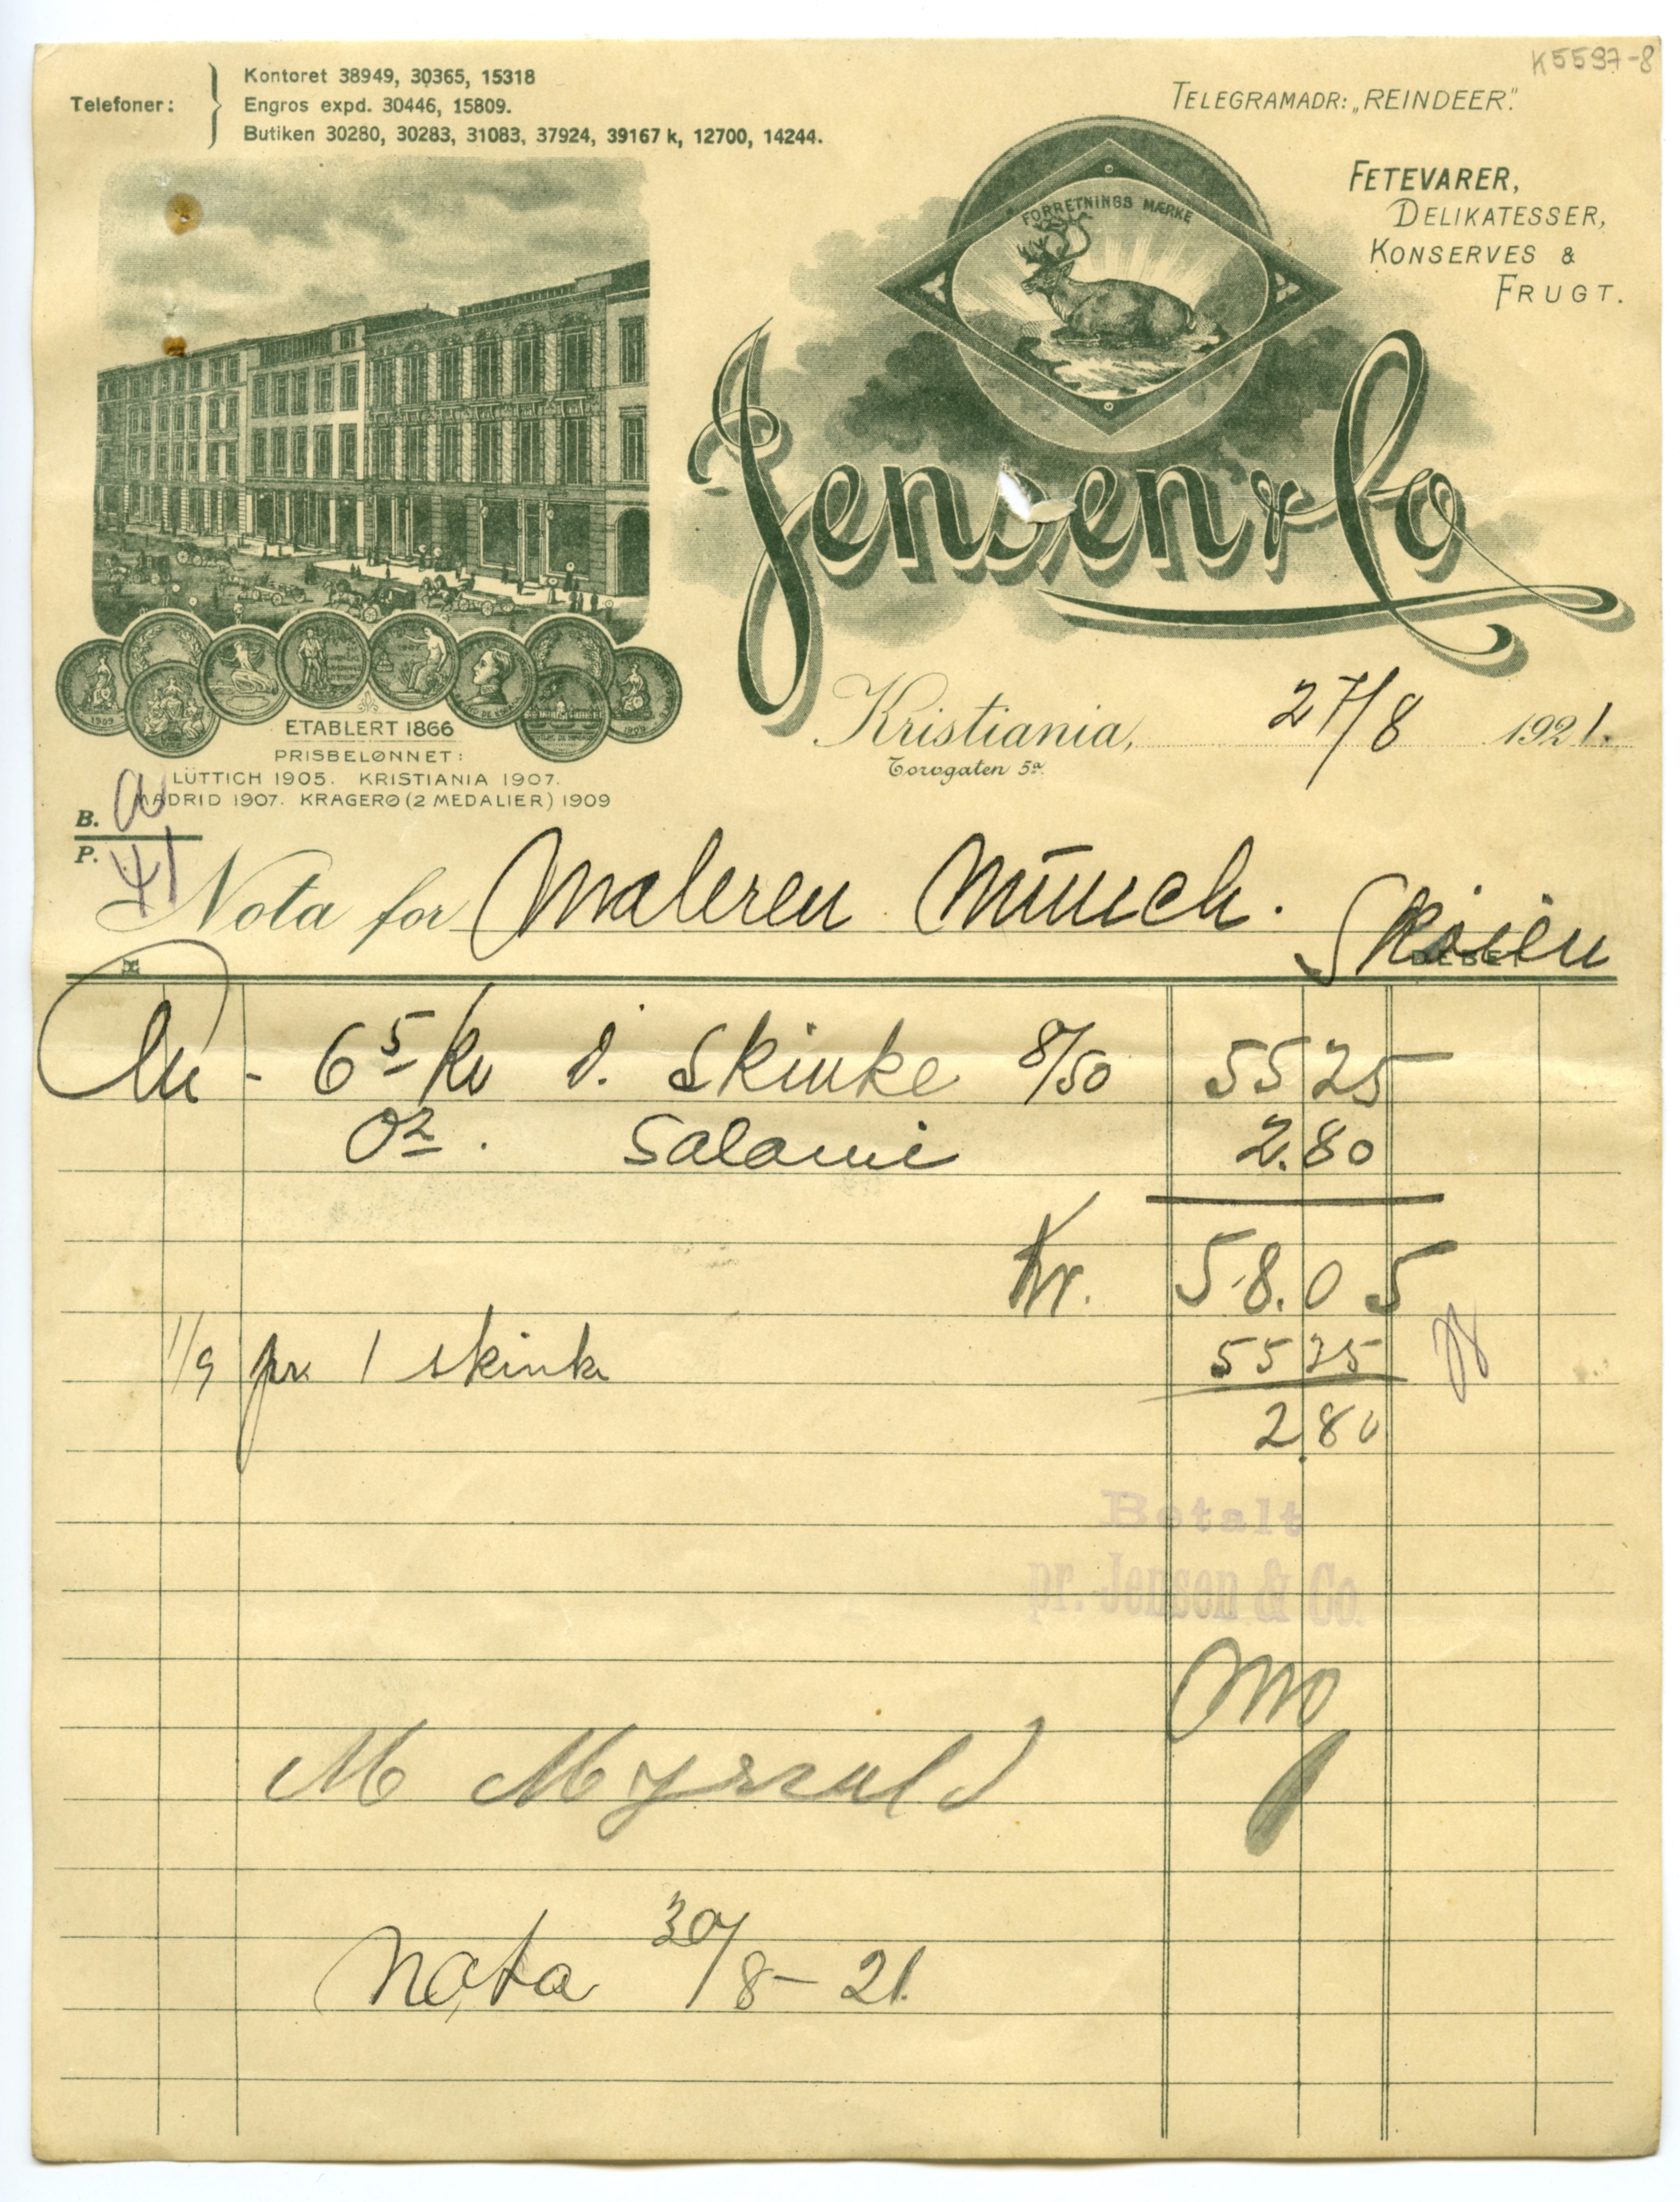 K5597-8
Telefoner:
Kontoret 38949, 30365, 15318
Engros expd. 30446, 15809.
Butiken 30280, 30283, 31083, 37924, 39167 k, 12700, 14244.
TELEGRAMADR: „REINDEER".
FETEVARER,
DELIKATESSER,
KONSERVES &
FRUGT.
FORRETNINGS MÆRKE
Jensen & Co
ETABLERT 1866
PRISBELØNNET:
LÜTTICH 1905. KRISTIANIA 1907.
MADRID 1907. KRAGERØ (2 MEDALIER) 1909
Kristiania, 27/8 1921.
Torvgaten 5a.
B.
P. 41
Nota for Maleren Münch. Skøien
DEBET
6 5 d. Skinke 8/50 55 25
02. Salami 2.80
Kr. 58.05
1/9 pr 1 skinke 55 25
2 80
Betalt
pr. Jensen & Co.
M Myrvold
Nota 30/8-21.